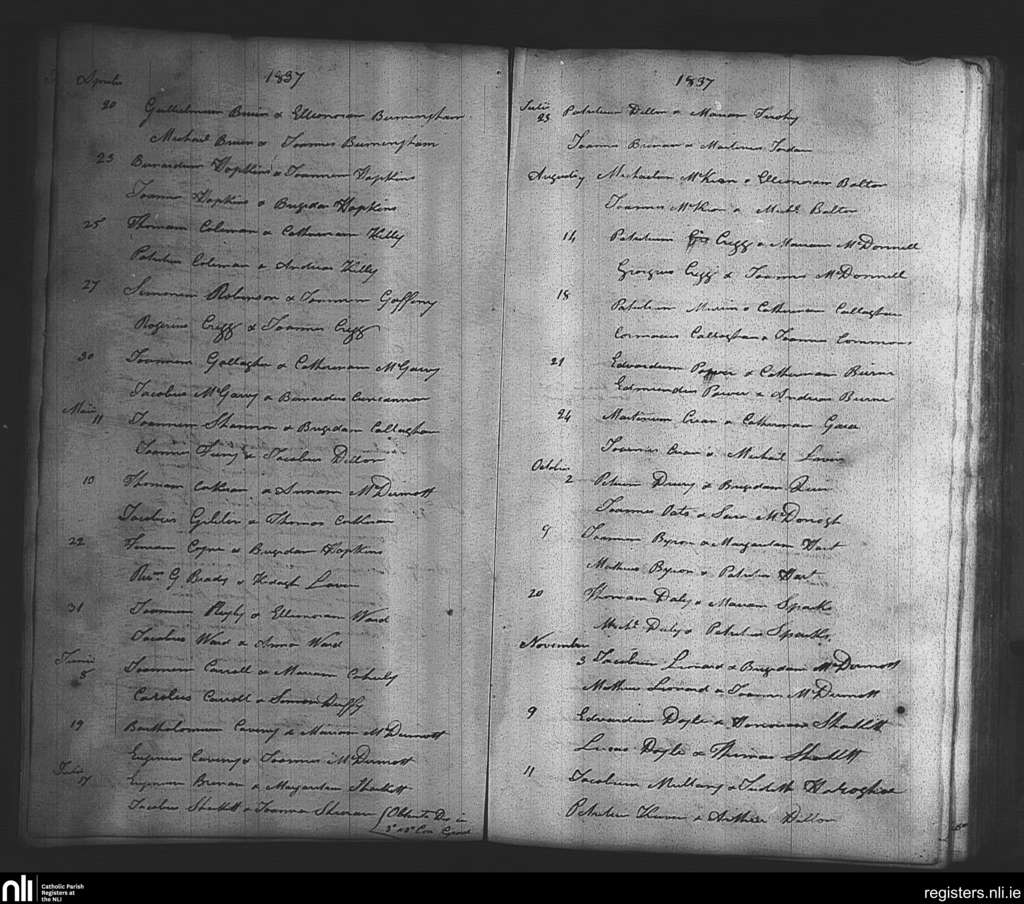 1837
Aprilis
20 Gulielmum Bruin & Elleonoram Burmingham
Michael Bruin & Joannes Burmingham
23 Bernardum Hopkins & Joannam Hopkins
Joannes Hopkins & Brigida Hopkins
25 Thomam Coleman & Catherinam Killy
Patritius Coleman & Andreas Killy
27 Simonem Robinson & Joannam Gaffeny
Rogerius Cregg & Joannes Cregg
30 Joannem Gallagher & Catherinam McGarry
Jacobus McGarry & Barnardus Concannon
Maii
11 Joannem Shannon & Brigidam Callaghan
Joannes & Jacobus Dillon
10 Thomam Corkran & Annam McDermott
Jacobus & Thomas Corkran
22 Coyne & Brigidam Hopkins
Revm. G Brady & Lavin
31 Joannem & Ellenoram Ward
Jacobus Ward & Anna Ward
Junii
8 Joannem Carroll & Mariam
Carolus Carroll & Duffy
19 Bartholomeum Caveny & Mariam McDermott
Eugenius Caveny & Joannes McDermott
Julii
17 Eugenium Brenan & Margaritam Shaklett
Jacobus Shaklett & Joanna
in
3o & 3o Con Grad
1837
Julii
23 Patritium Dillon & Mariam
Joannes Brenan & Martinus Jordan
Augusti 7 Michaelem McKeon & Elleonoram Bolton
Joannes McKeon & Michl. Bolton
14 Patritium Cregg & Mariam McDonnell
Georgius Cregg & Joannes McDonnell
18 Patritium & Catherinam Callaghan
Cormacus Callaghan & Joannes Commons
21 Edwardum Power & Catherinam Burne
Edmundus Power & Andreas Burne
24 Martinum Crean & Catherinam Gara
Joannes Crean & Michael Lavin
Octobris
2 Petrum Drury & Brigidam Quin
Joannes Oats & Sara McDonogh
9 Joannem Byron & Margaritam Hart
Matheus Byron & Patritius Hart
20 Thomam Daly & Mariam Sparks
Michl. Daly & Patritius Sparks
November
3 Jacobum Leonard & Brigidam McDermott
Matheus Leonard & Joannes McDermott
9 Edwardum Doyle & Honoriam Shaklett
Lucas Doyle & Thomas Shaklett
11 Jacobum Mullany & Judith
Patritius & Arthur Dillon
nli Catholic Parish
Registers at
the NLI
registers.nli.ie